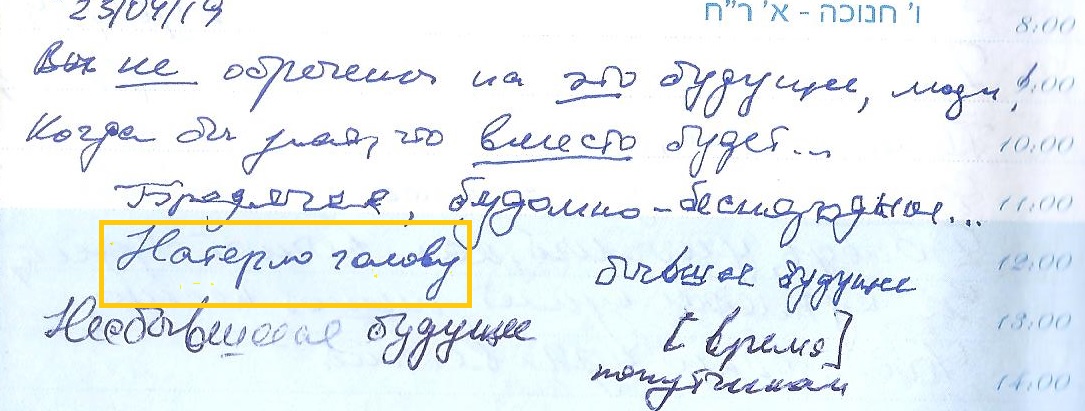 23/04/19
ו' חנוכה - א' ר"ח
8:00
Вы не обречены на это будущее, люди!
9:00
Когда бы знать, что вместо будет...
10:00
будомно-бесплодное...
11:00
Натерло голову
бывшее будущее
12:00
Несбывшееся будущее
[время]
13:00
попутчикам
14:00